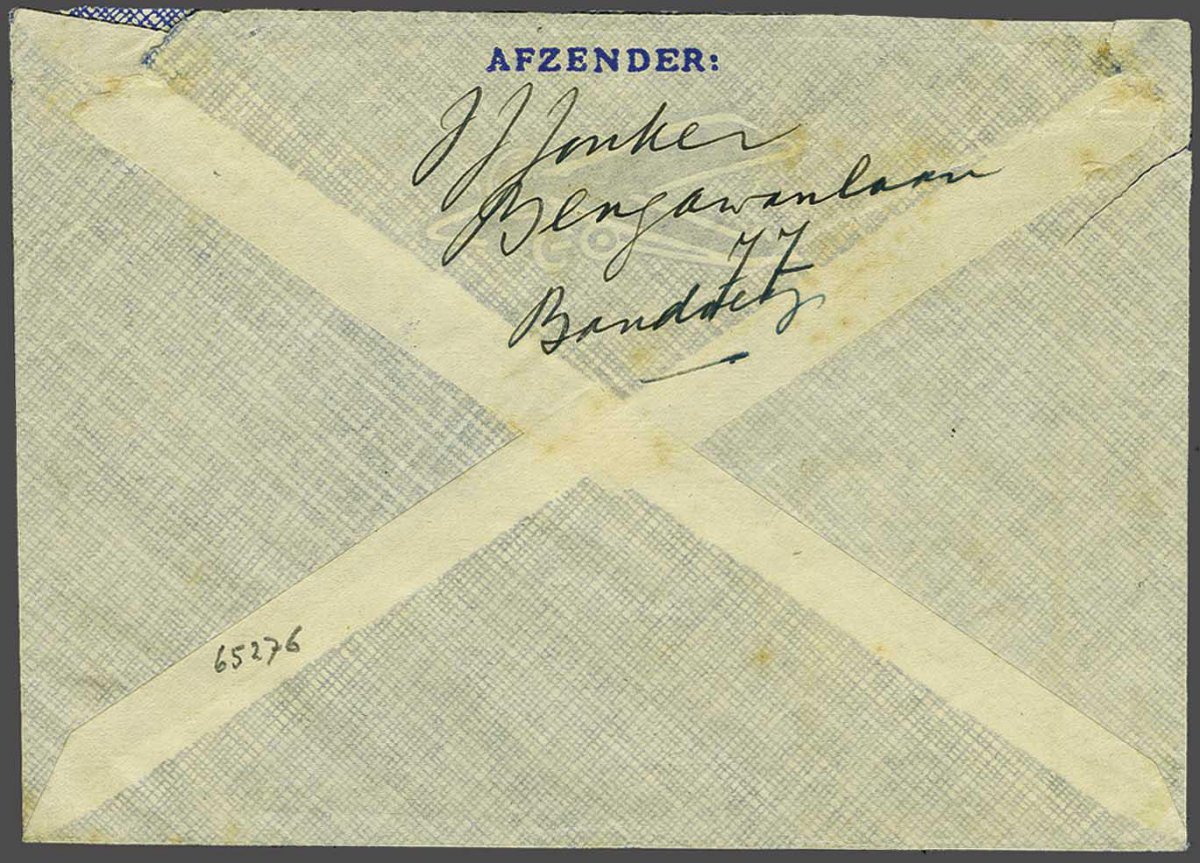 AFZENDER:
J J Jonker
Bengawanlaan
77
Bandoeng
65276